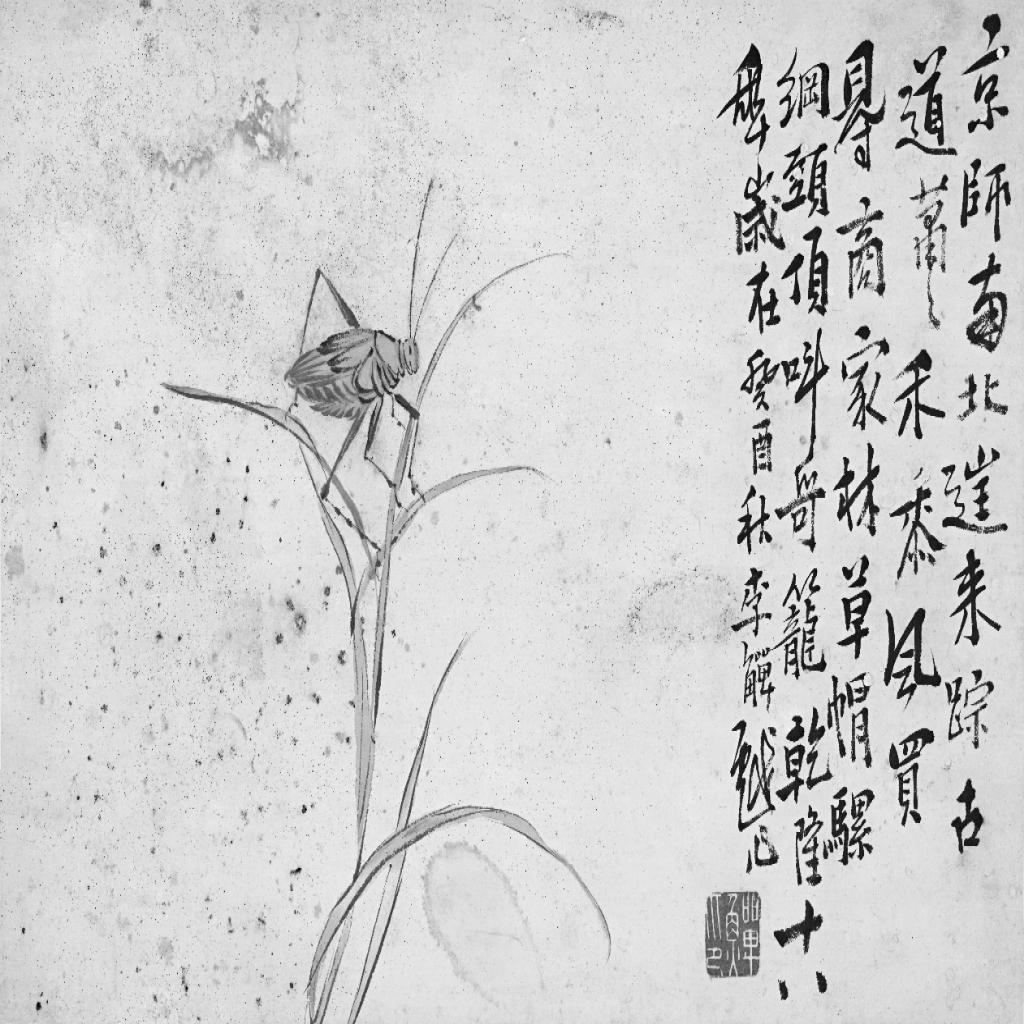 京師南北往来踪古
道蕭〻禾黍風買
得商家林草帽騾
綱頭頂叫哥籠乾隆十八
年歲在癸酉秋李觶戲